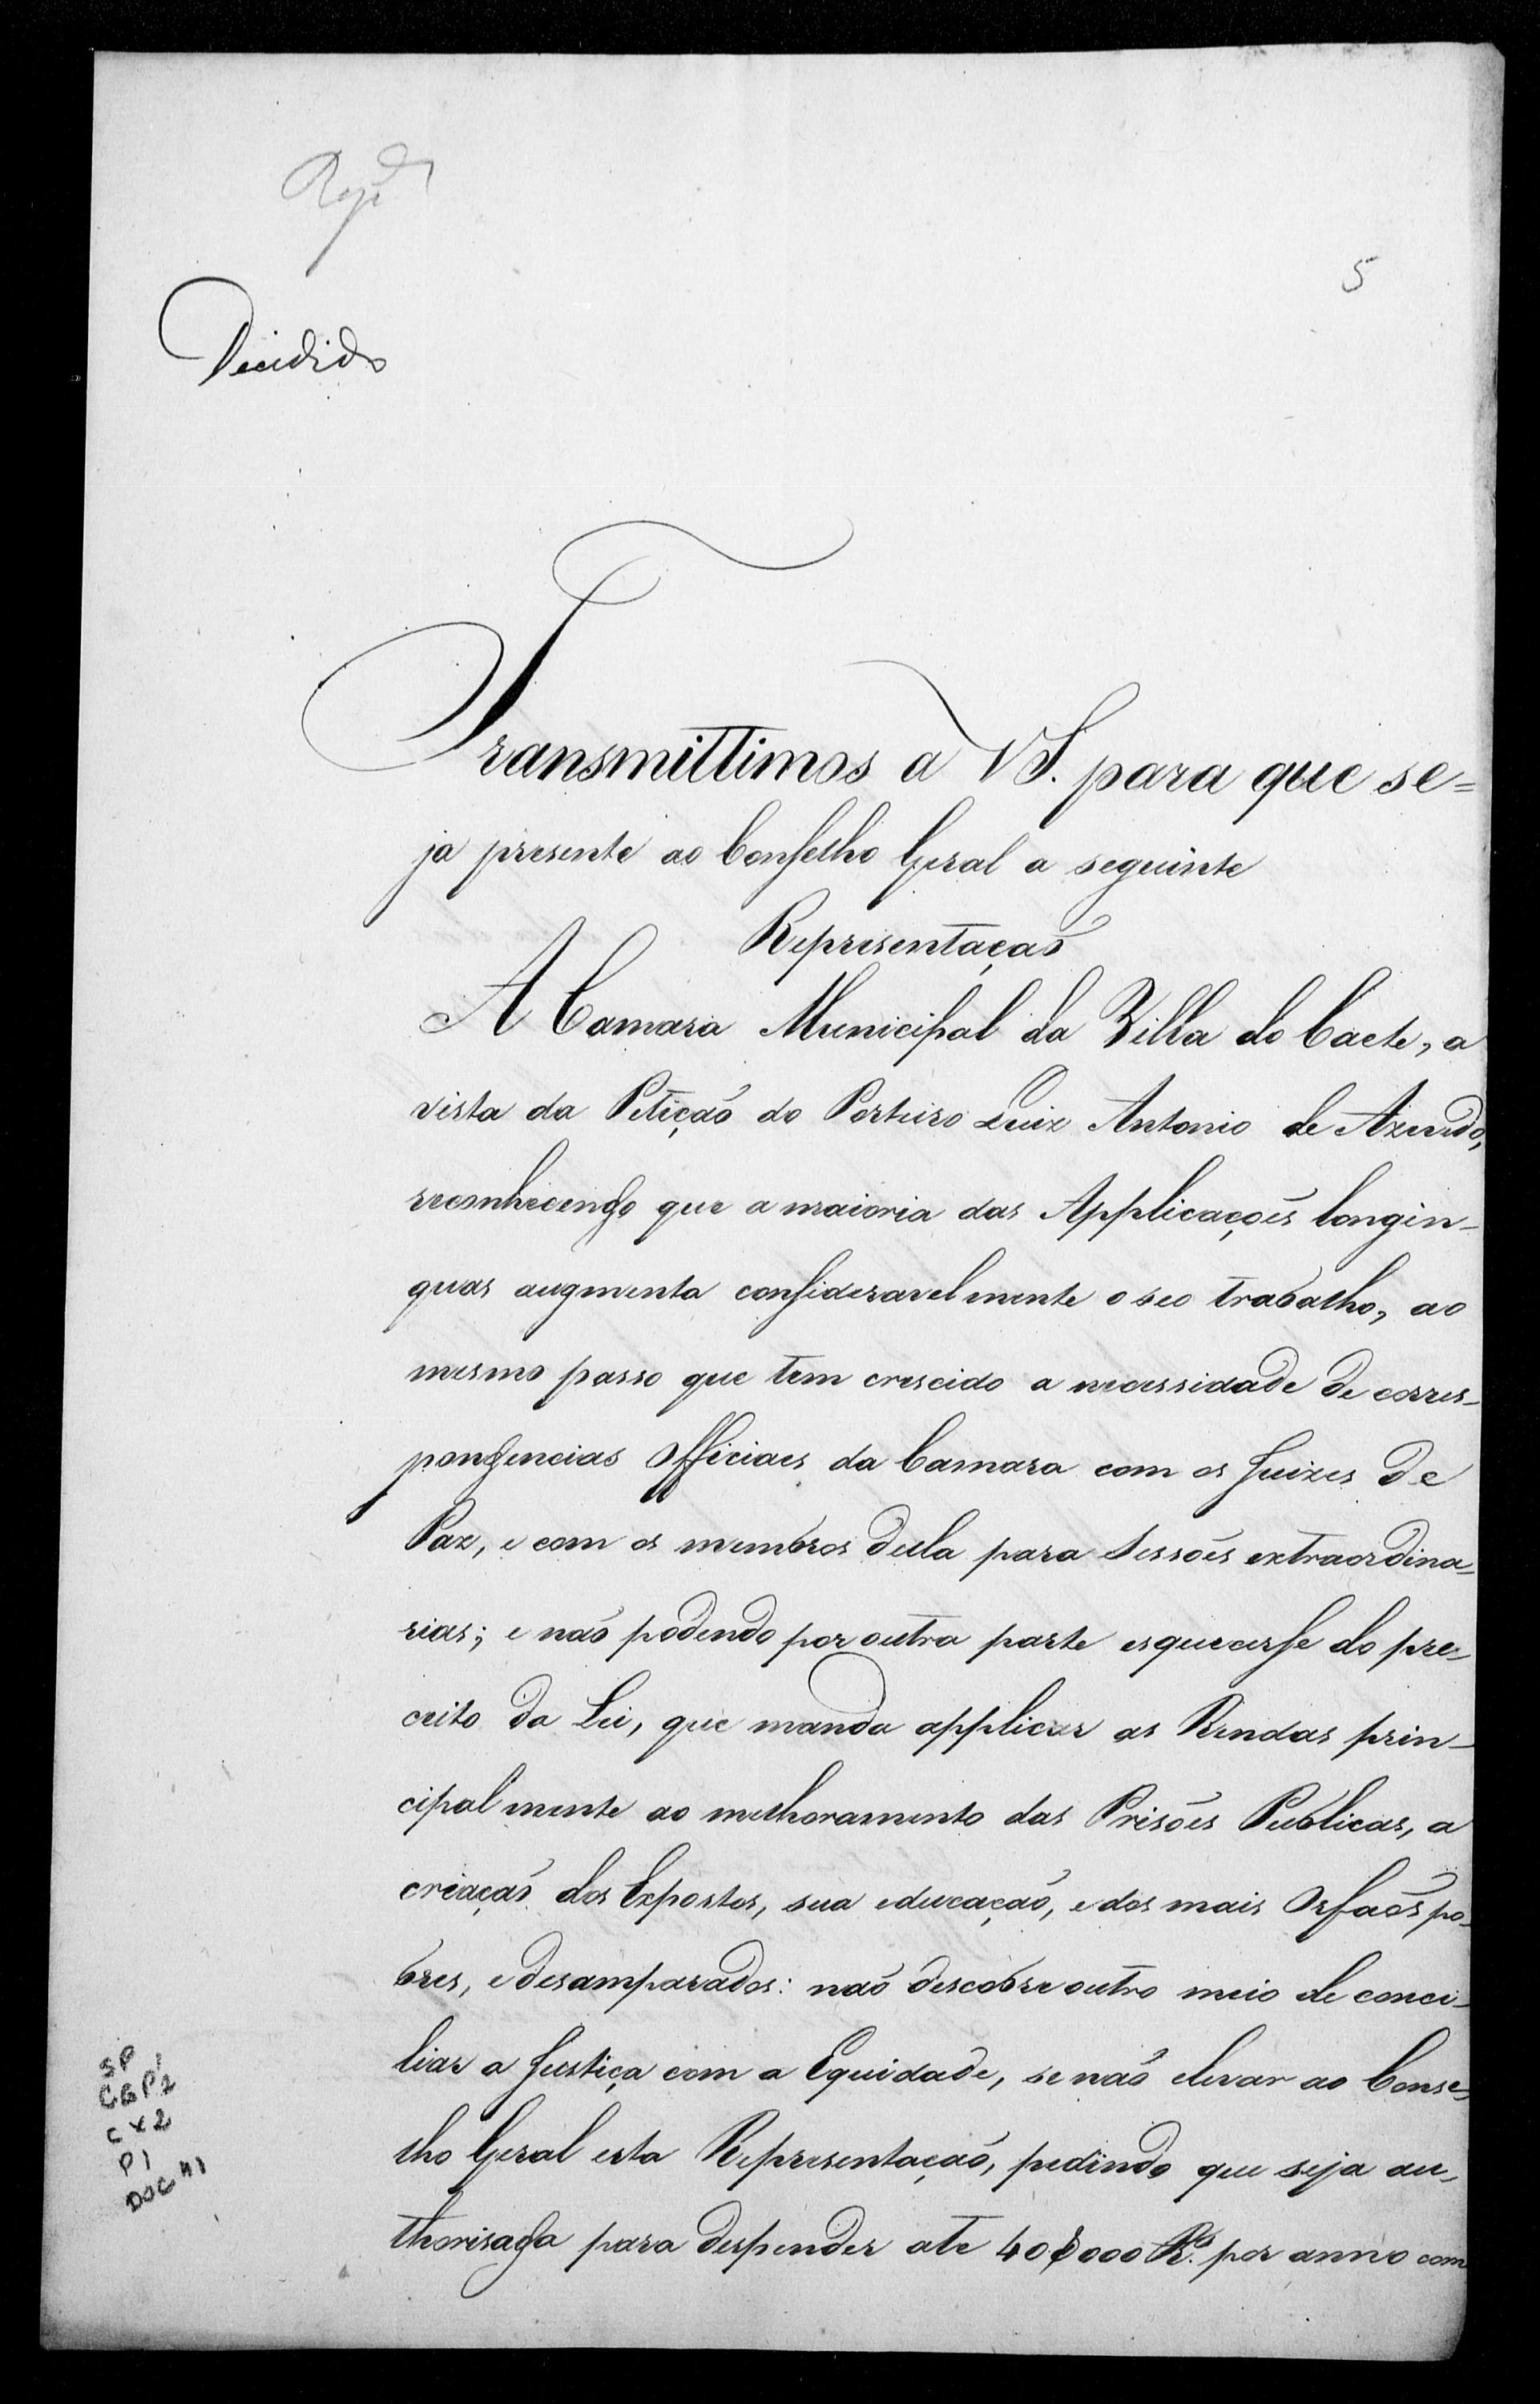 5
Decidido
Transmittimos a VS. para que se=
ja presente ao Conselho Geral a seguinte
Representaçaõ
A Camara Municipal da Villa do Caete, a
vista da Petiçaõ do Porteiro Luiz Antonio de Azevedo,
reconhecendo que a maioria das Applicaçoẽs longin-
quas augmenta consideravelmente o seo trabalho, ao
mesmo passo que tem crescido a necessidade de corres-
pondencias Officiaes da Camara com os Juizes de
Paz, e com os membros della para Sessoẽs extraordina-
rias; e naõ podendo por outra parte esquecerse do pre-
ceito da Lei, que manda applicar as Rendas prin-
cipalmente ao melhoramento das Prisoẽs Publicas, a
criaçaõ dos Expostos, sua educaçaõ, e dos mais Orfaõs po-
bres, e desamparados: naõ descobre outro meio de conci-
liar a Justiça com a Equidade, se naõ elevar ao Conse-
lho Geral esta Representaçaõ, pedindo que seja au-
thorisada para despender ate 40$000 Rs. por anno com
SP 1
CGP2
CX2
P1
DOC 41